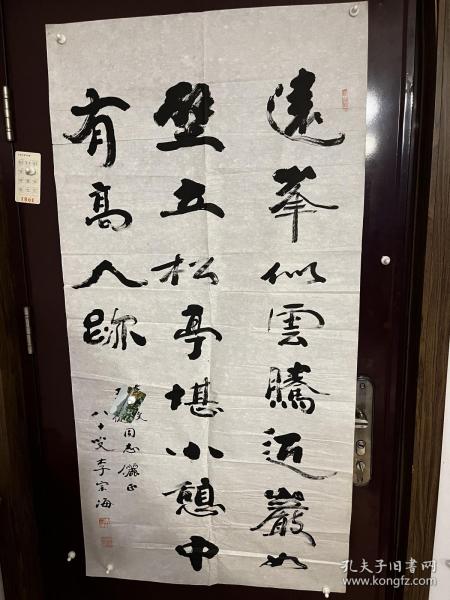 遠峯似雲騰近巖如
壁立松亭堪小憩中
有高人跡
同志儷正
八十叟李宗海
孔夫子旧书网
www.kongfz.com